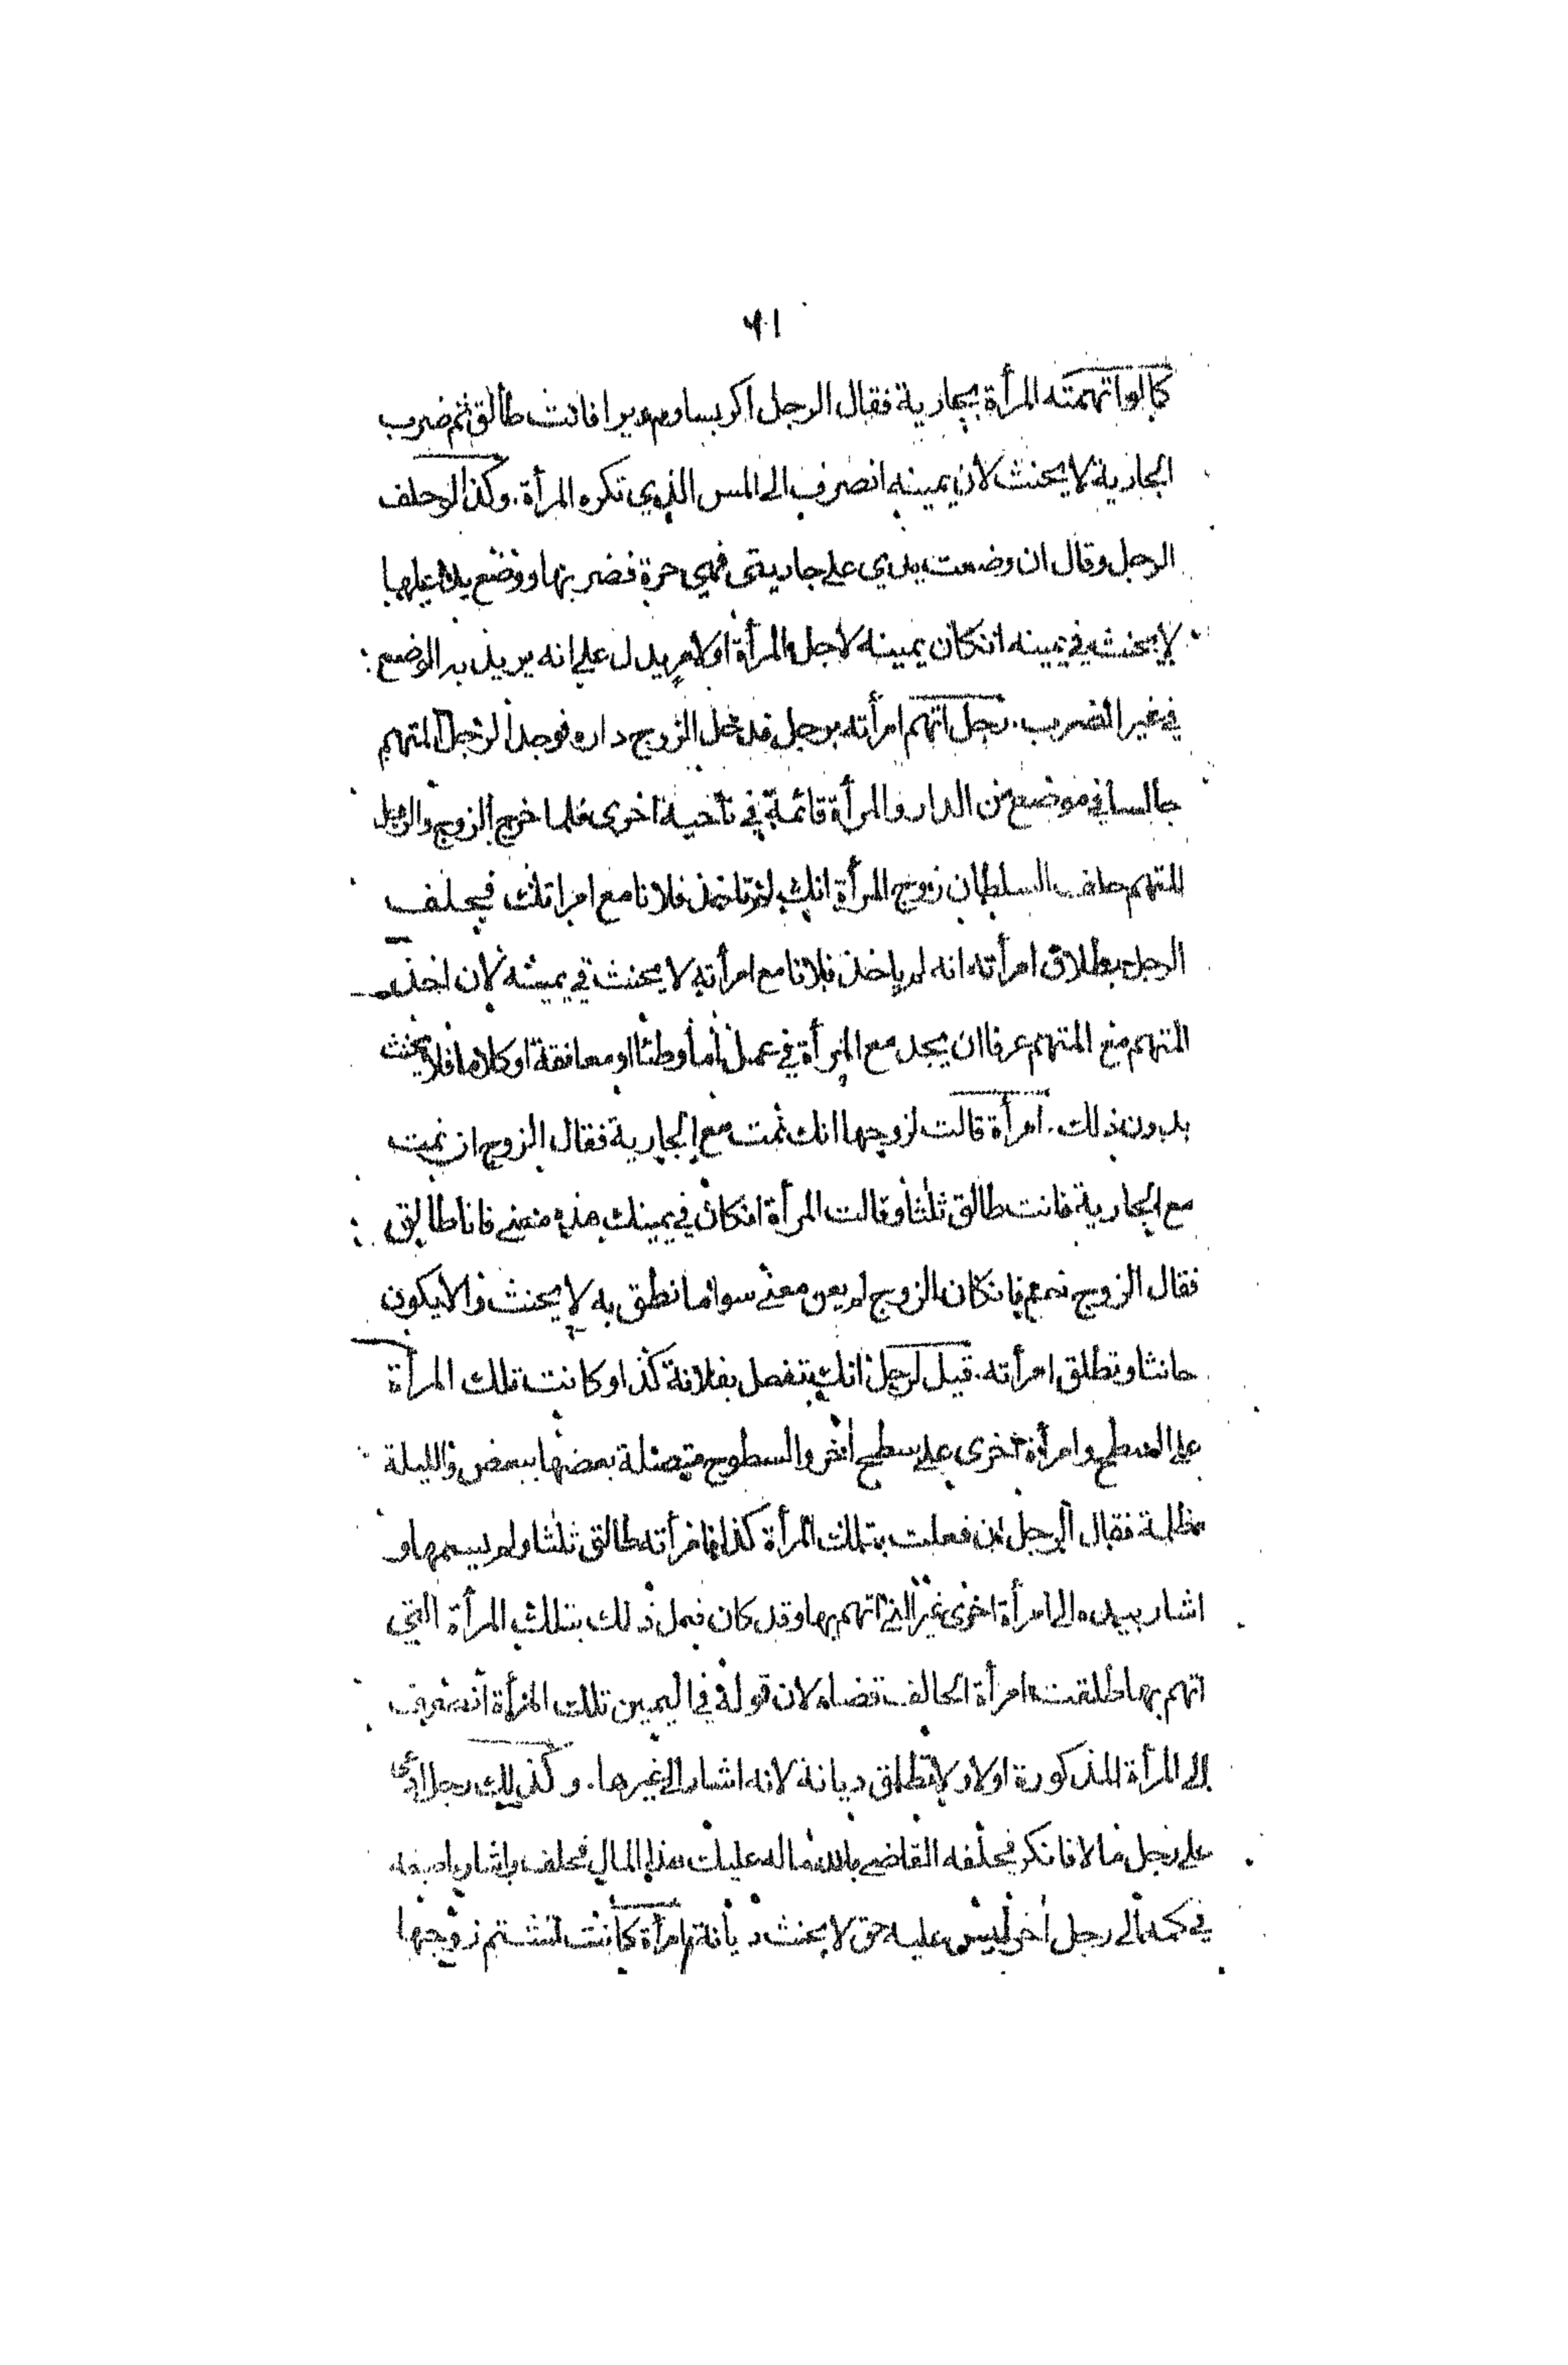 ٦١
كما لو اتهمته المرأة بجارية فقال الرجل اكر بساوم ويرا فانت طالق ثم ضرب
الجارية لا يحنث لأن يمينه انصرف الى المس الذي تكره المرأة. وكذا لو حلف
الرجل وقال ان وضعت يدي على جاريتى فهي حرة فضربها ووضع يده عليها
لا يحنث في يمينه انكان يمينه لاجل المرأة او لامر يدل على انه يريد به الوضع
في غير الضرب. رجل اتهم امرأته برجل فدخل الزوج داره فوجد الرجل المتهم
جالسا في موضع من الدار والمرأة قائمة في ناحية اخرى فلما خرج الزوج والرجل
المتهم حلف السلطان زوج المرأة انك لم تاخذ فلانا مع امراتك فحلف
الرجل بطلاق امرأته انه لم ياخذ فلانا مع امرأته لا يحنث في يمينه لان اخذ
المتهم مع المتهم عرفا ان يجد مع المرأة في عمل اما وطئا او معانقة او كلاما فلا يحنث
بدون ذلك. امرأة قالت لزوجها انك نمت مع الجارية فقال الزوج ان نمت
مع الجارية فانت طالق ثلثا وقالت المرأة انكان في يمينك هذه معنى فانا طالق
فقال الزوج نعم فانكان الزوج لم يعن معنى سوا ما نطق به لا يحنث والا يكون
حانثا وتطلق امرأته. قيل لرجل انك تفعل بفلانة كذا وكانت تلك المرأة
على السطح وامرأة اخرى على سطح اخر والسطوح متصلة بعضها ببعض والليلة
مظلمة فقال الرجل ان فعلت بتلك المرأة كذا فامرأته طالق ثلثا ولم يسمها و
اشار بيده الى امرأة اخرى غير التي اتهم بها وقد كان فعل ذلك بتلك المرأة التي
اتهم بها طلقت امرأة الحالف قضاء لان قوله في اليمين تلك المرأة انصرف
إلى المرأة المذكورة اولا ولا تطلق ديانة لانه اشار الى غيرها. وكذلك رجل ادعى
على رجل مالا فانكر فحلفه القاضي بالله ماله عليك هذا المال فحلف واشار باصبعه
في كمه الى رجل اخر ليس عليه حق لا يحنث ديانة امرأة كانت تشتم زوجها